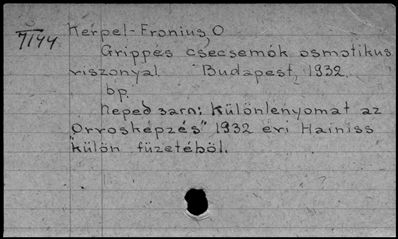 VI 144
Kerpel-Fronius, O
Grippés csecsemők osmotikus
viszonyai. Budapest, 1932.
6p.
Neped sarn: Különlenyomat az
"Orvosképzés" 1932 évi Hainiss
külön füzetéböl.